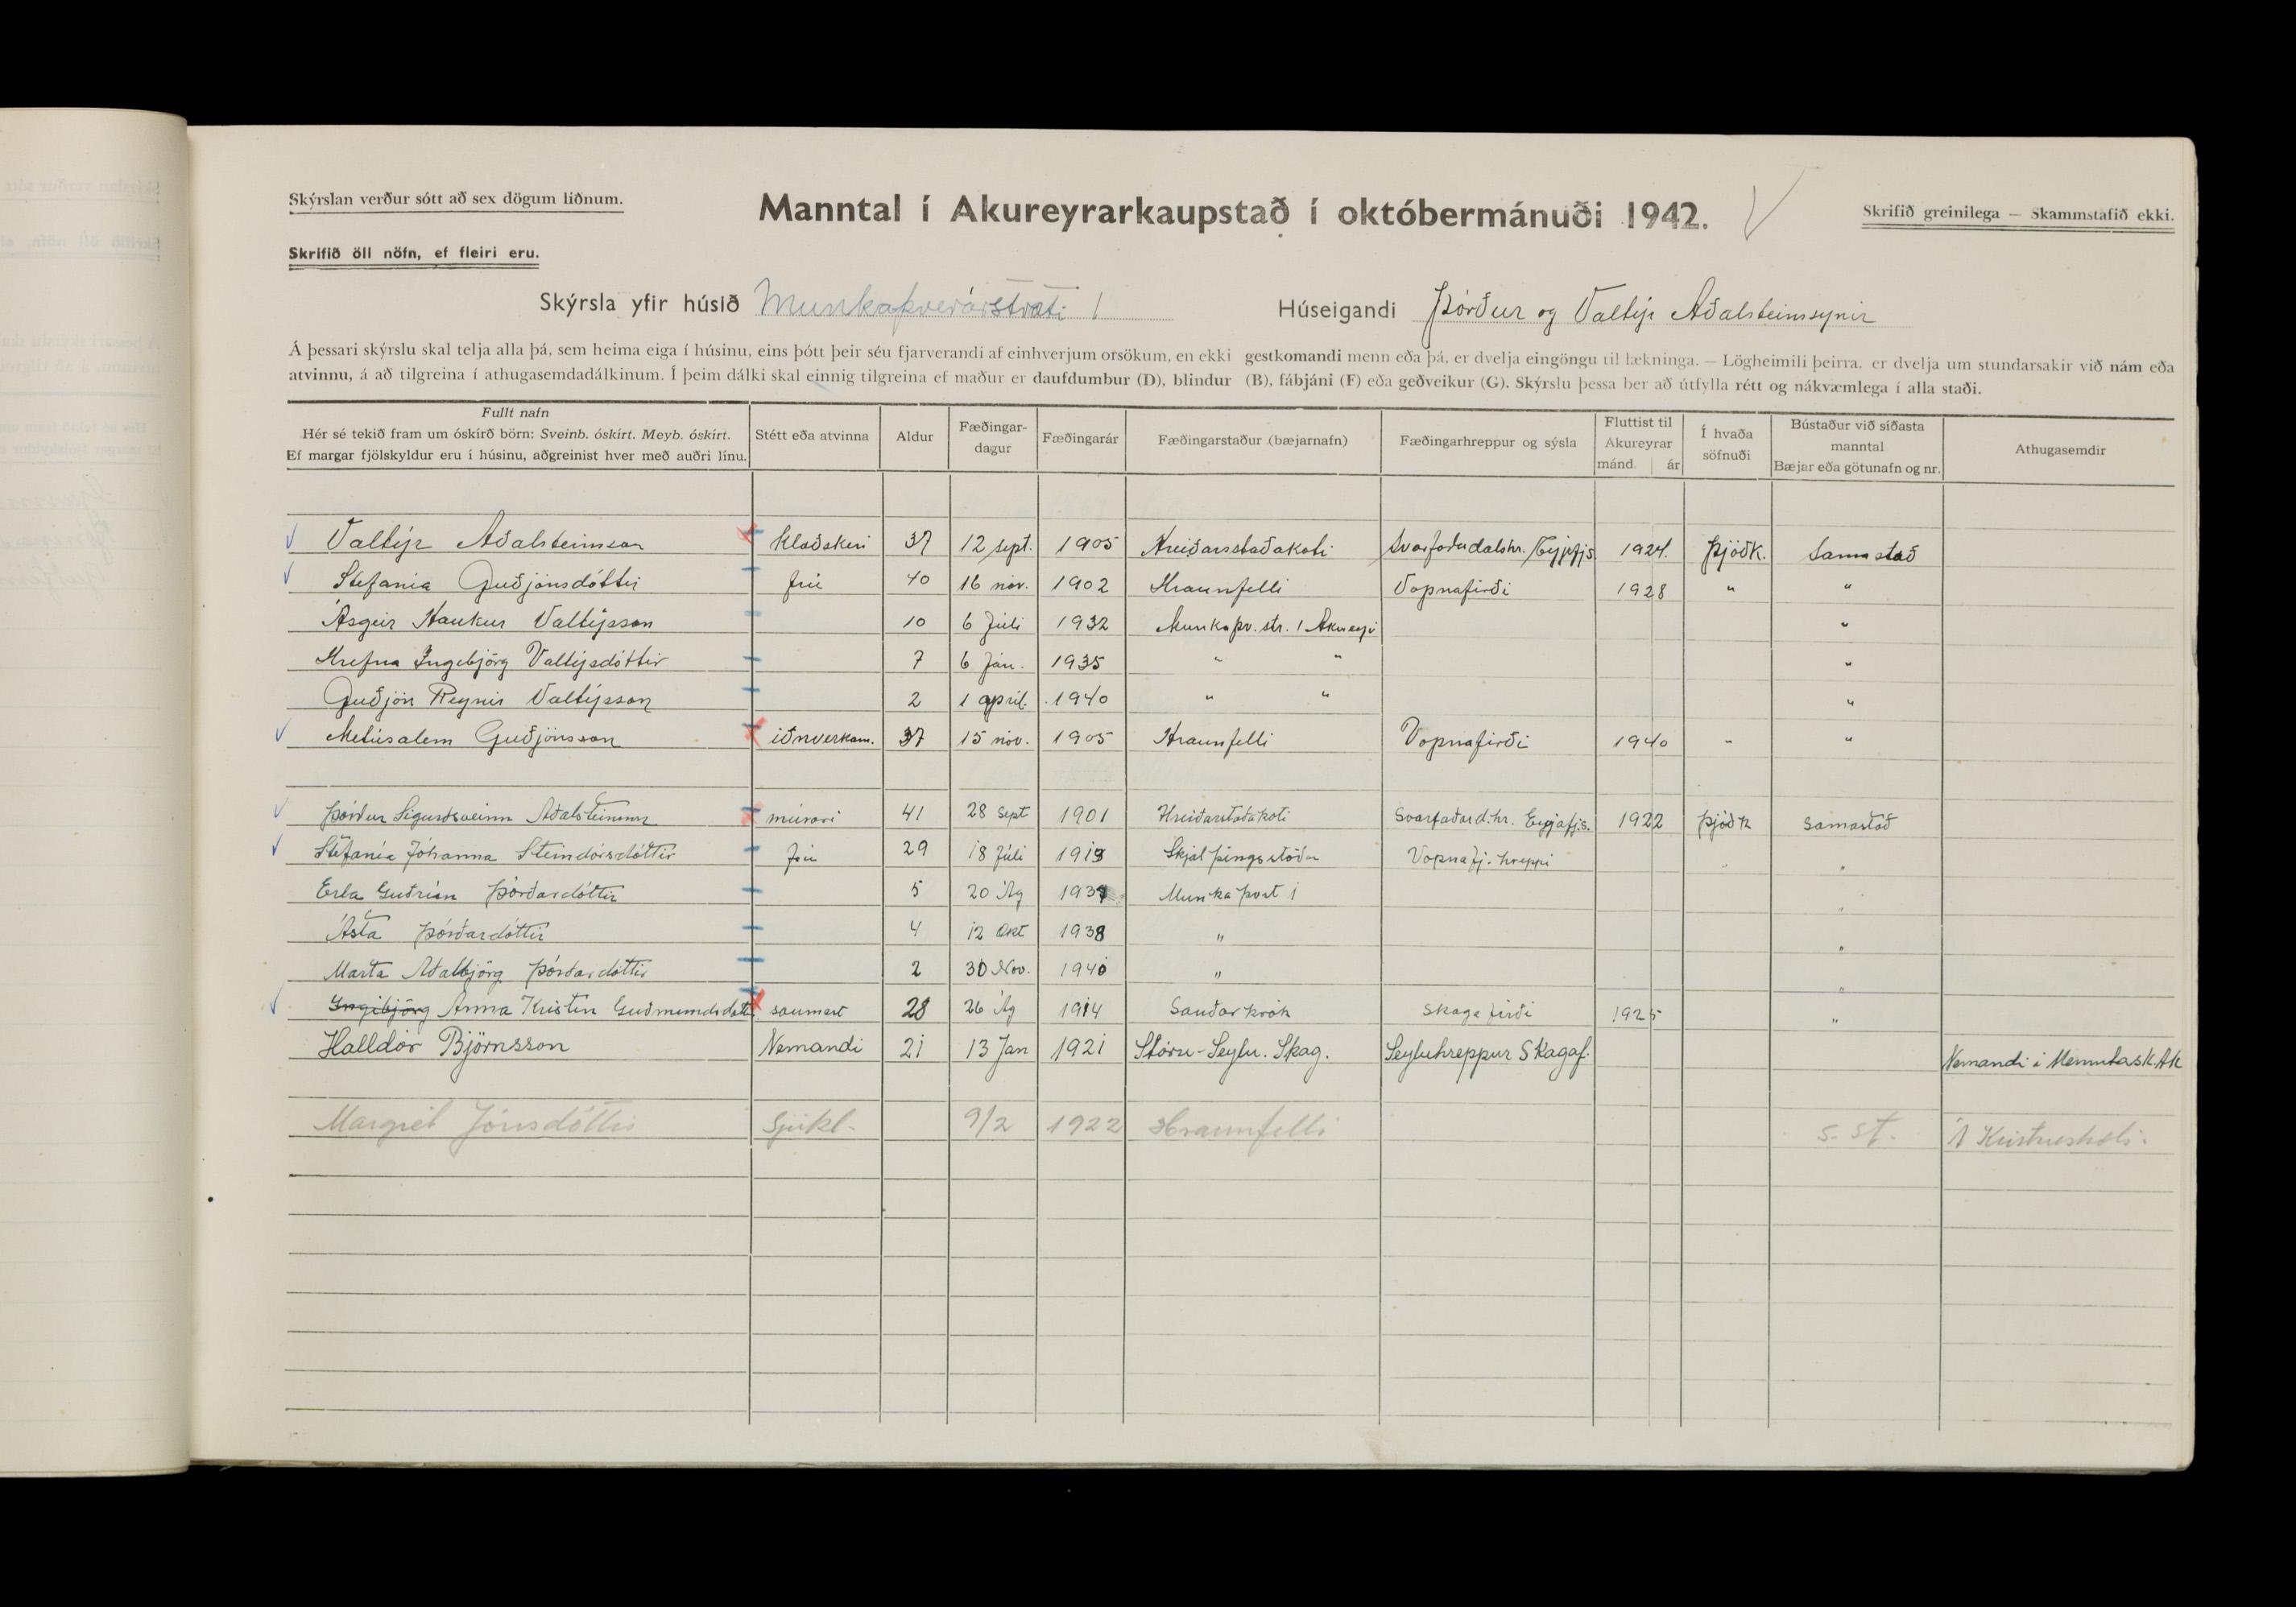 Skýrslan verður sótt að sex dögum liðnum.
Manntal í Akureyrarkaupstað í októbermánuði 1942.
Skrifið greinilega — Skammstafið ekki.
Skrifið öll nöfn, ef fleiri eru.
Skýrsla yfir húsið Munkaþverárstræti 1 Húseigandi Þórður og Valtýr Aðalsteinssynir
Á þessari skýrslu skal telja alla þá, sem heima eiga í húsinu, eins þótt þeir séu fjarverandi af einhverjum orsökum, en ekki gestkomandi menn eða þá, er dvelja eingöngu til lækninga. — Lögheimili þeirra. er dvelja um stundarsakir við nám eða
atvinnu, á að tilgreina í athugasemdadálkinum. Í þeim dálki skal einnig tilgreina ef maður er daufdumbur (D), blindur (B), fábjáni (F) eða geðveikur (G). Skýrslu þessa ber að útfylla rétt og nákvæmlega í alla staði.
Fullt nafn
Hér sé tekið fram um óskírð börn: Sveinb. óskírt. Meyb. óskírt.
Ef margar fjölskyldur eru í húsinu, aðgreinist hver með auðri línu.
Stétt eða atvinna
Aldur
Fæðingar-
dagur
Fæðingarár
Fæðingarstaður (bæjarnafn)
Fæðingarhreppur og sýsla
Fluttist til
Akureyrar
mánd. ár
Í hvaða
söfnuði
Bústaður við síðasta
manntal
Bæjar eða götunafn og nr.
Athugasemdir
Valtýr Aðalsteinsson klæðskeri 37 12 sept. 1905 Hreiðarsstaðakoti Svarfaðardalshr. Eyjafjs 1924. Þjóðk. Sama stað
Stefania Guðjónsdóttir frú 40 16 nóv. 1902 Hraunfelli Vopnafirði 1928 " "
Ásgeir Haukur Valtýsson 10 6 Júlí 1932 Munkaþv. str. 1 Akureyri "
Hrefna Ingibjörg Valtýsdóttir 7 6 Jan. 1935 " " "
Guðjón Reynir Valtýsson 2 1 apríl. 1940 " " "
Metúsalem Guðjónsson iðnverkam. 37 15 nóv. 1905 Hraunfelli Vopnafirði 1940 " "
Þórður Sigursveinn Aðalsteinsson múrari 41 28 sept 1901 Hreiðarstaðakoti Svarfaðard.hr. Eyjafjs. 1922 Þjóðk samastað
Stefanía Jóhanna Steindórsdóttir frú 29 18 Júlí 1913 Skjalþingsstöðum Vopnafj. hreppi " "
Erla Guðrún Þórðardóttir 5 20 Ág 1937 Munkaþvst 1 "
Ásta Þórðardóttir 4 12 Okt 1938 " "
Marta Aðalbjörg Þórðardóttir 2 30 Nóv. 1940 " "
Ingibjörg Anna Kristín Guðmundsdóttir saumast 28 26 Ág 1914 Sauðarkrók Skagafirði 1925 "
Halldór Björnsson Nemandi 21 13 Jan 1921 Stóru-Seylu. Skag. Seyluhreppur Skagaf. Nemandi í Menntask. Ak
Margrét Jónsdóttir Sjúkl. 9/2 1922 Hraunfelli s. st. Á Kristneshæli.